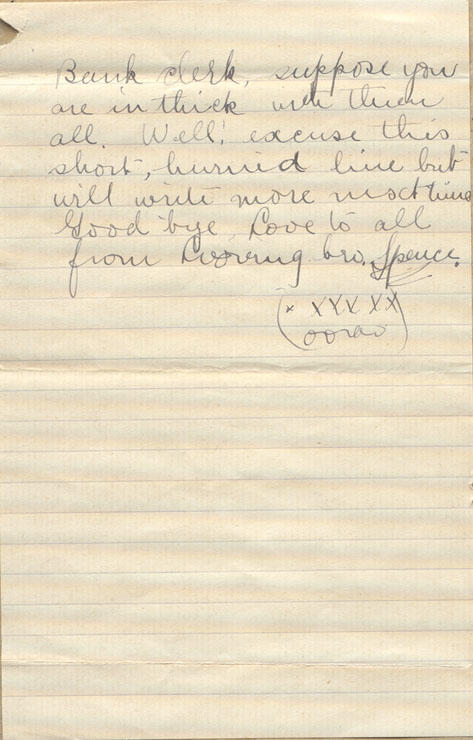 Bank clerk, suppose you
are in thick with them
all. Well! excuse this
short, hurried line but
will write more next time
Good bye, Love to all
from Loving bro. Spence.
(x XXX XX